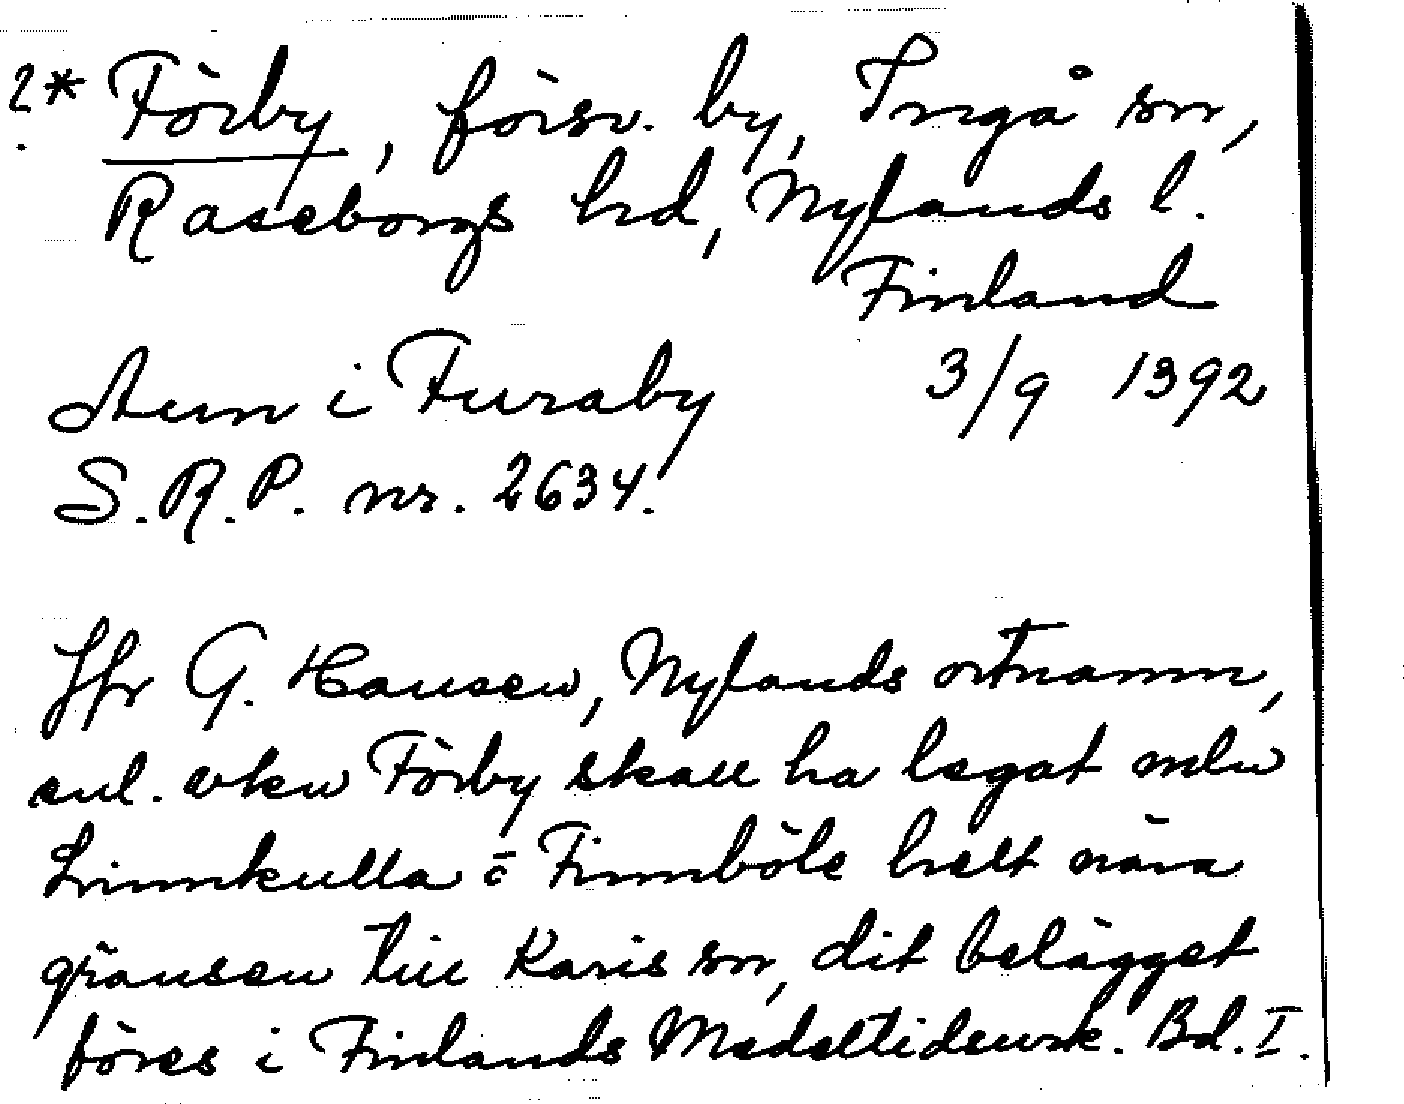 2* Förby, försv. by, Ingå sn,
Raseborgs hd, Nylands l.
Finland
Aum i Furaby 3/9 1392
S.R.P. nr. 2634.
Jfr G. Hausen, Nylands ortnamn,
enl. vken Förby skall ha legat mlu
Linnkulla o Finnböle helt nära
gränsen till Karis sn, dit belägget
föres i Finlands Medeltidsurk. Bd. I.